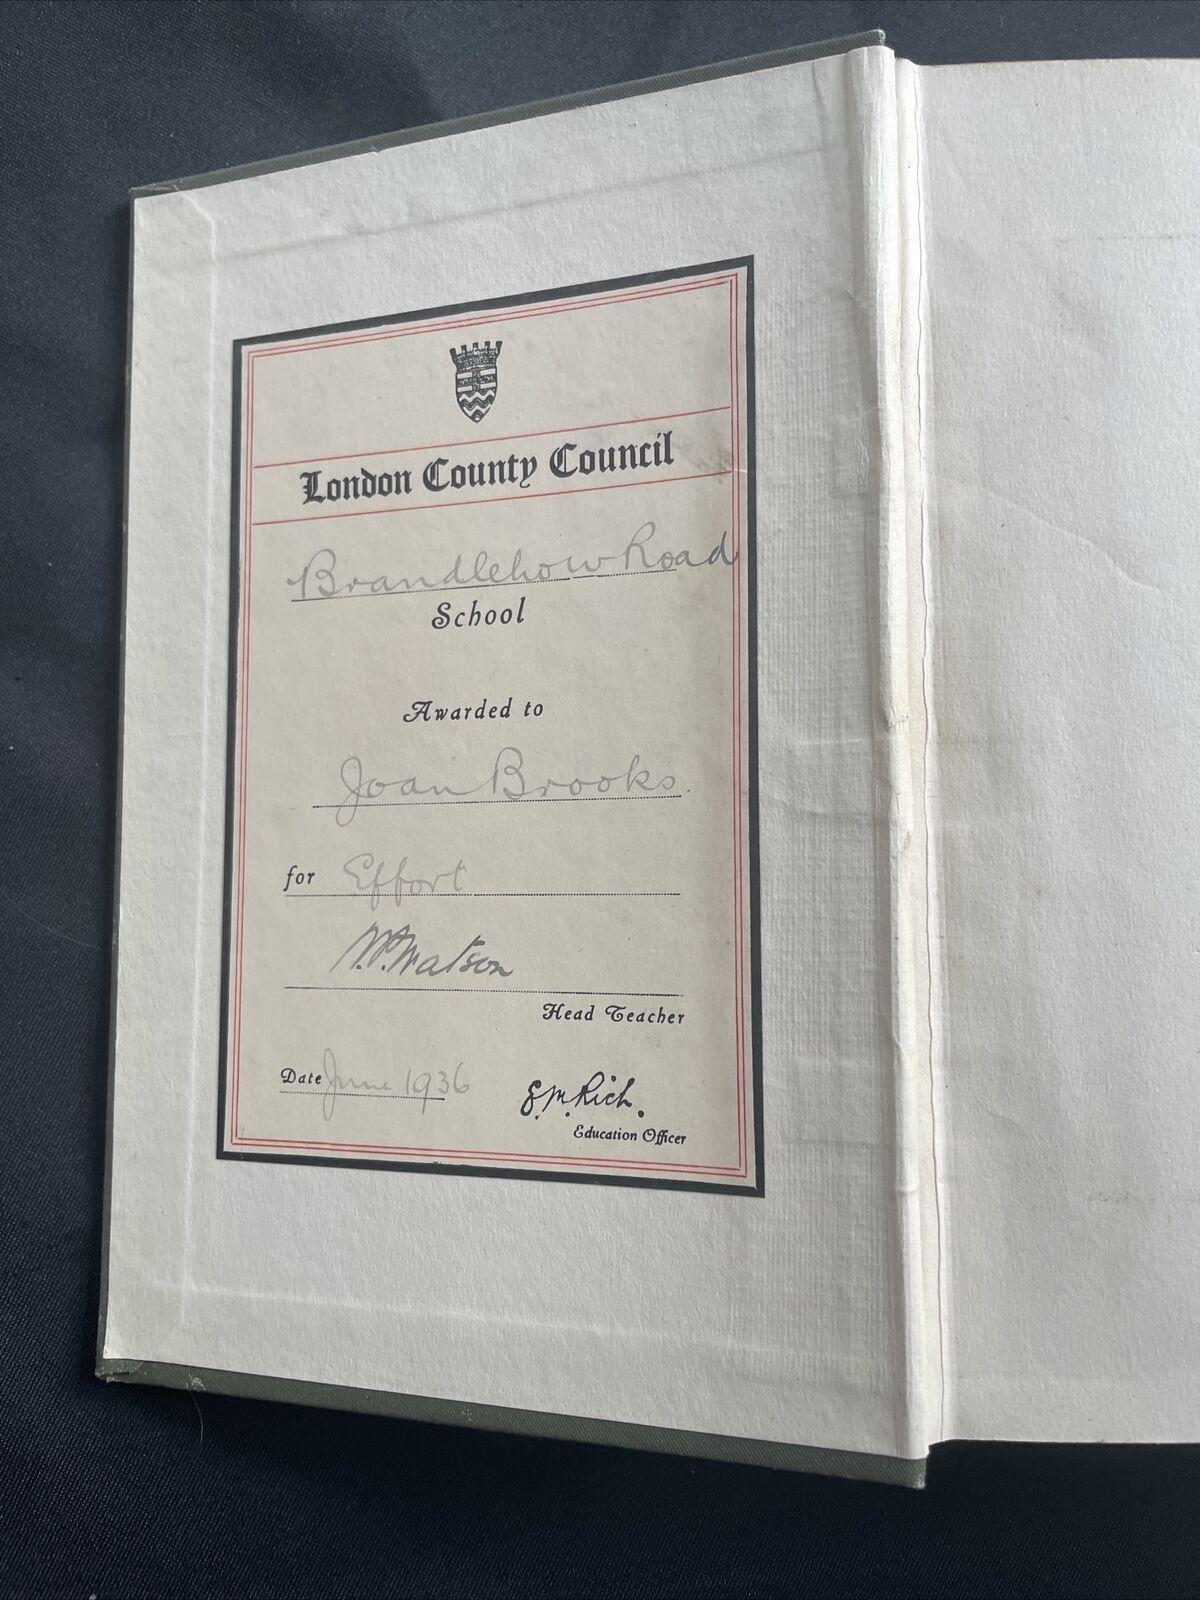 London County Council
Brandlehow Road
School
Awarded to
Joan Brooks.
for Effort
Watson
Head Teacher
Date June 1936
E.M. Rich.
Education Officer